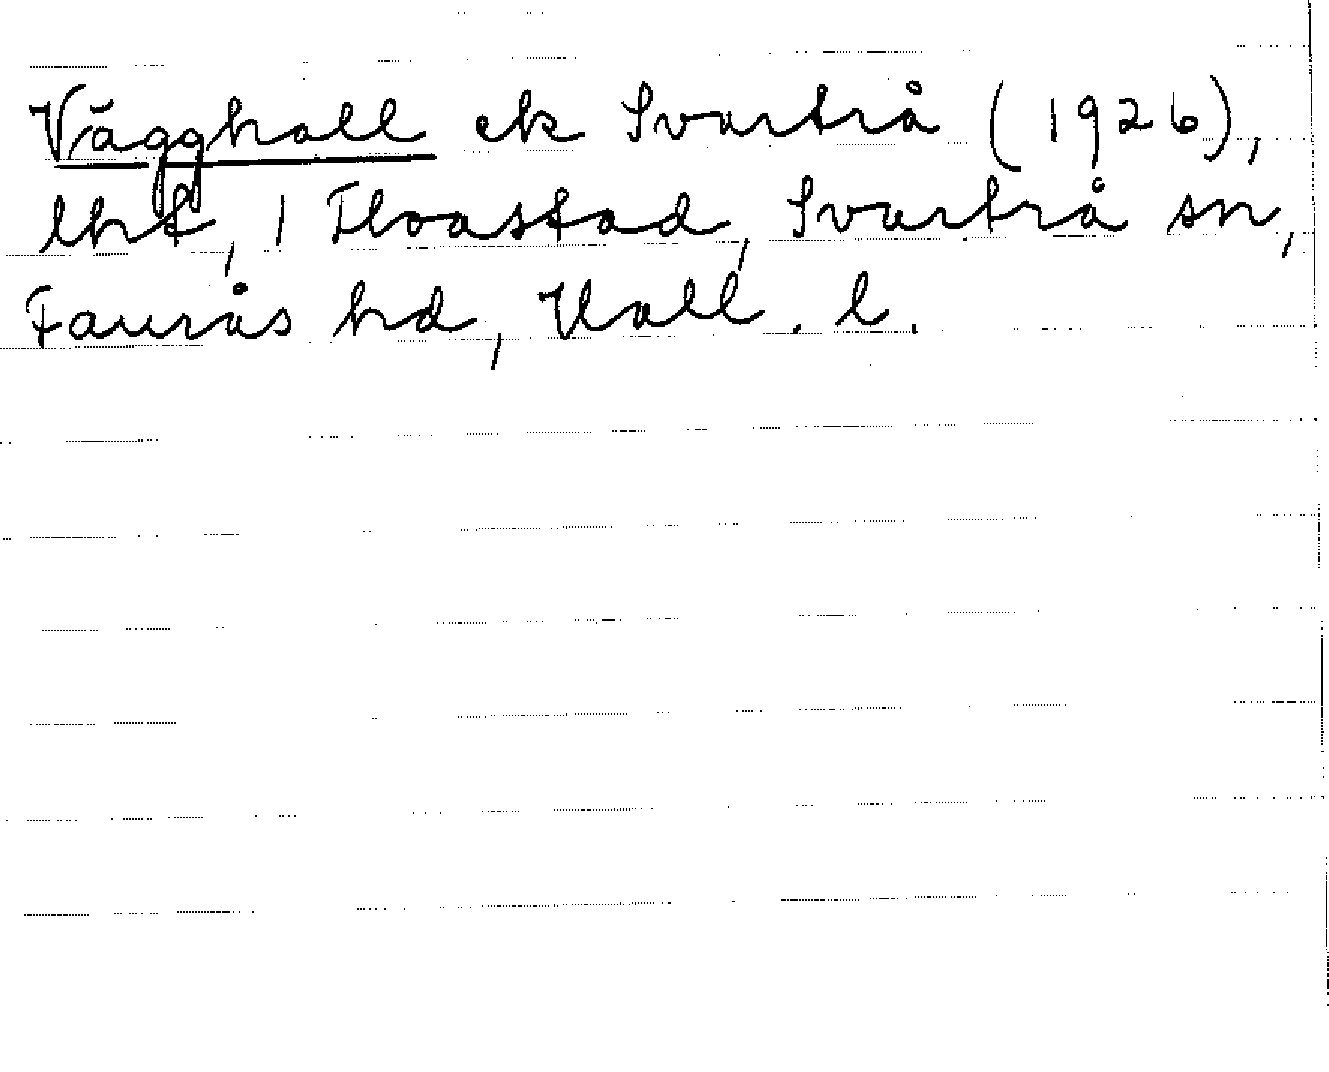 Vägghall ek Svartrå (1926),
lht, 1 Floastad, Svartrå sn,
Faurås hd, Hall. l.